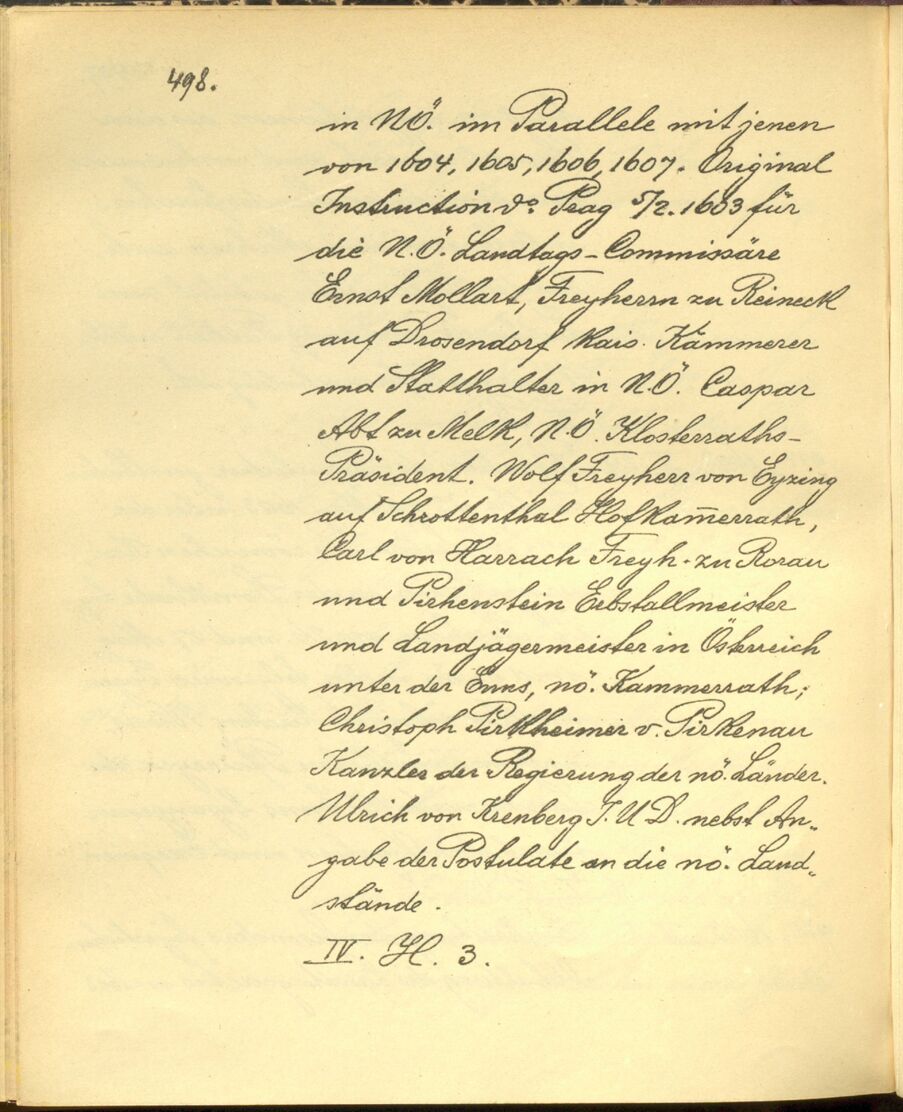 498.
in NÖ. im Parallele mit jenen
von 1604, 1605, 1606, 1607. Original
Instruction do Prag 5/2. 1603 für
die N.Ö. Landtags-Commissäre
Ernst Mollart, Freyherrn zu Reineck
auf Drosendorf Kais. Kämmerer
und Statthalter in N.Ö. Caspar
Abt zu Melk, N.Ö. Klosterraths-
Präsident. Wolf Freyherr von Eyzing
auf Schrottenthal Hofkam̅errath,
Carl von Harrach Freyh. zu Rorau
und Pirhenstein Erbstallmeister
und Landjägermeister in Österreich
unter der Enns, nö. Kammerrath;
Christoph Pirkheimer v. Pirkenau
Kanzler der Regierung der nö. Länder.
Ulrich von Krenberg J. U D. nebst An„
gabe der Postulate an die nö. Land„
stände.
IV. H. 3.